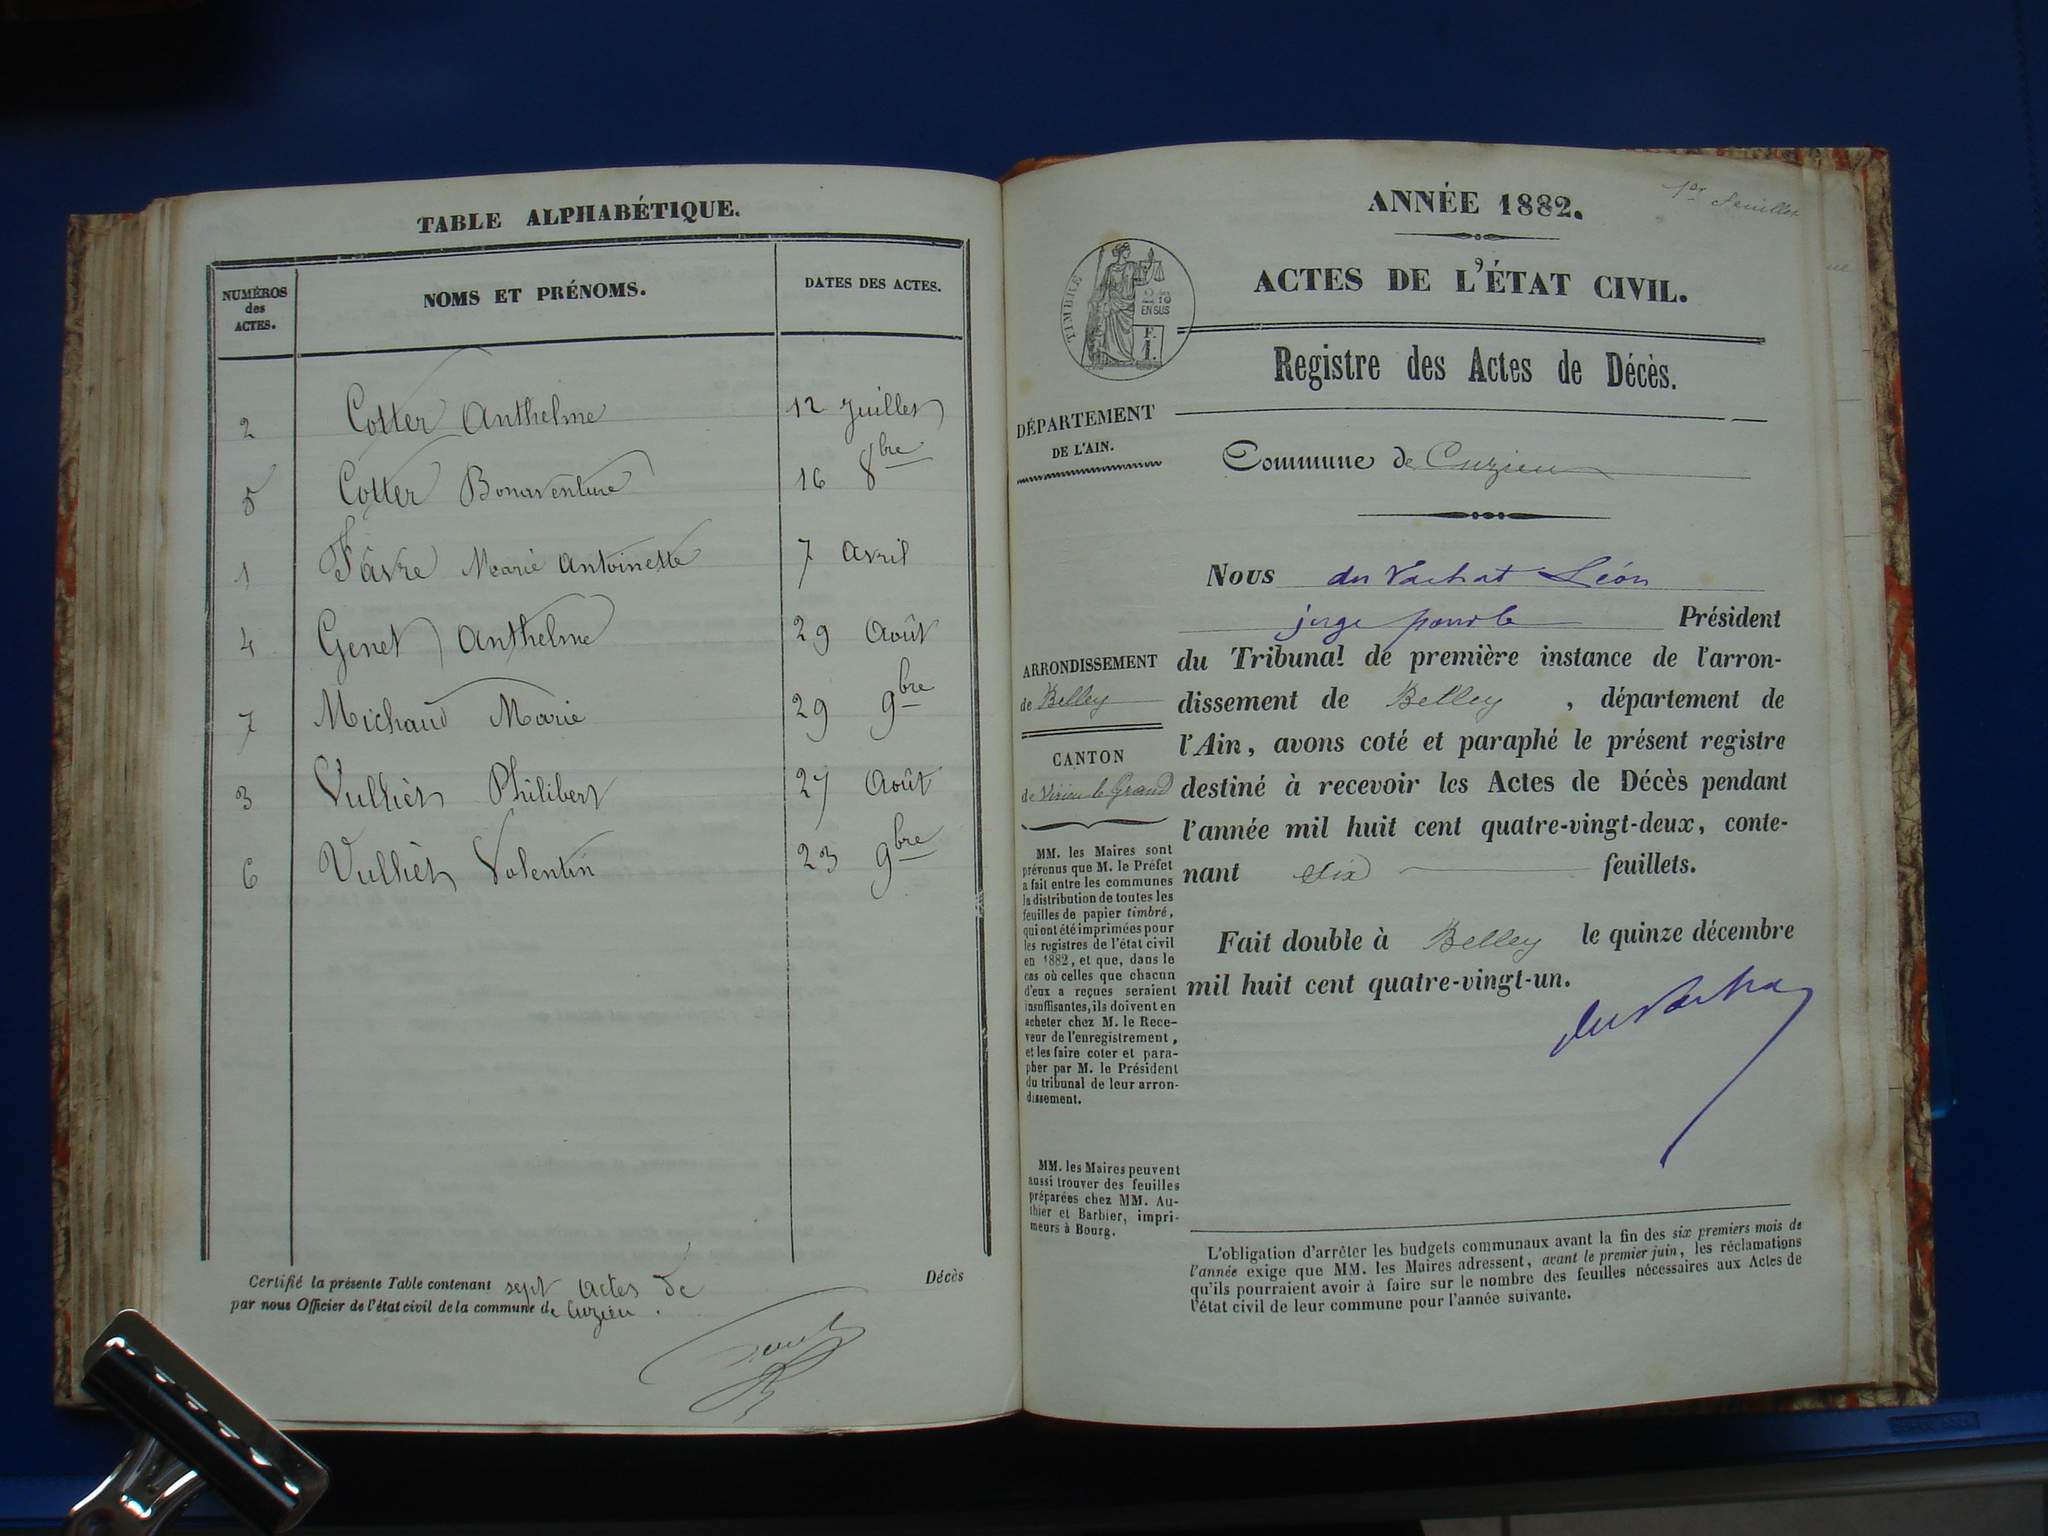 TABLE ALPHABÉTIQUE.
NUMÉROS
des
ACTES.
NOMS ET PRÉNOMS.
DATES DES ACTES.
2 Cotter Anthelme 12 Juillet
5 Cotter Bonaventure 16 8bre
1 Fâvre Marie Antoinette 7 Avril
4 Genet Anthelme 29 Août
7 Michaud Marie 29 9bre
3 Vulliet Philibert 27 Août
6 Vulliet Valentin 23 9bre
Certifié la présente Table contenant sept actes de Décès
par nous Officier de l'état civil de la commune de Cuzieu.
1er feuillet
ANNÉE 1882.
ACTES DE L'ÉTAT CIVIL.
TIMBRE
2/10
EN SUS
F.
1.
Registre des Actes de Décès.
DÉPARTEMENT
DE L'AIN.
Commune de Cuzieu
Nous du Vachat Léon
juge pour le Président
du Tribunal de première instance de l'arron-
dissement de Belley, département de
l'Ain, avons coté et paraphé le présent registre
destiné à recevoir les Actes de Décès pendant
l'année mil huit cent quatre-vingt-deux, conte-
nant six feuillets.
Fait double à Belley le quinze décembre
mil huit cent quatre-vingt-un.
du Vachat
ARRONDISSEMENT
de Belley
CANTON
de Virieu le Grand
MM. les Maires sont
prévenus que M. le Préfet
a fait entre les communes
la distribution de toutes les
feuilles de papier timbré,
qui ont été imprimées pour
les registres de l'état civil
en 1882, et que, dans le
cas où celles que chacun
d'eux a reçues seraient
insuffisantes, ils doivent en
acheter chez M. le Rece-
veur de l'enregistrement,
et les faire coter et para-
pher par M. le Président
du tribunal de leur arron-
dissement.
MM. les Maires peuvent
aussi trouver des feuilles
préparées chez MM. Au-
thier et Barbier, impri-
meurs à Bourg.
L'obligation d'arrêter les budgets communaux avant la fin des six premiers mois de
l'année exige que MM. les Maires adressent, avant le premier juin, les réclamations
qu'ils pourraient avoir à faire sur le nombre des feuilles nécessaires aux Actes de
l'état civil de leur commune pour l'année suivante.